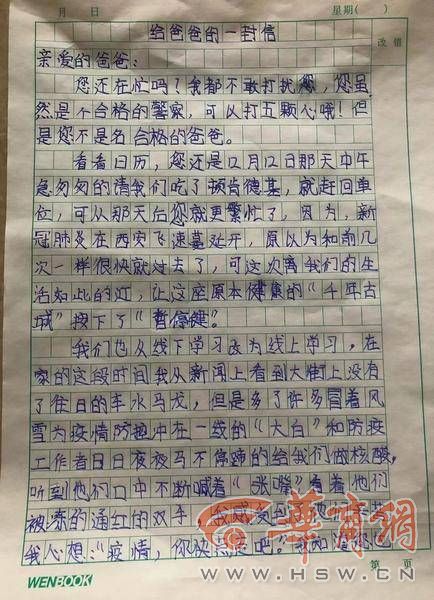 月 日 星期( )
给爸爸的一封信 改错
亲爱的爸爸:
您还在忙吗?我都不敢打扰您,您虽
然是个合格的警察,可以打五颗心哦!但
是您不是名合格的爸爸。
看看日历,您还是12月12日那天中午
急匆匆的请我们吃了顿肯德基,就赶回单
位,可从那天后您就更繁忙了,因为,新
冠肺炎在西安飞速蔓延开,原以为和前几
次一样很快就过去了,可这次离我们的生
活如此的近,让这座原本健康的“千年古
城”按下了“暂停键”。
我们也从线下学习改为线上学习,在
家的这段时间我从新闻上看到大街上没有
了往日的车水马龙,但是多了许多冒着风
雪为疫情防控冲在一线的“大白”和防疫
工作者日日夜夜马不停蹄的给我们做核酸,
听到他们口中不断喊着“张嘴”看着他们
被冻的通红的双手,我感受到
我心想:“疫情,你快点走吧!
华商网
WWW.HSW.CN
WENBOOK 第 页